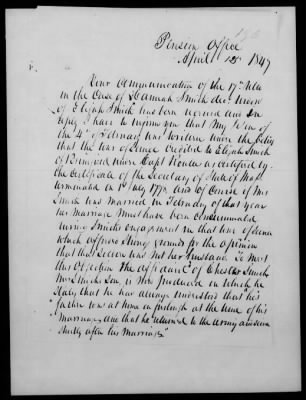 Pension Office
April 15th 1847
Your Communication of the 17th
in the Case of Hannah Smith dec. Widow
of Elijah Smith has been received and In
reply I have to inform you that my letter of
the 4th of February was written under the belief
that the War Service credited to Elijah Smith
of under Capt as certified by
the Certificate of the Secretary of State of Mass
terminated in 1st July 177 and Of Course if Mrs
Smith was married in February of that year
her Marriage Must have been Consummated
during Smiths engagement in that line of service
which affords strong grounds for the opinion
that this Person was Not her Husband. To Meet
this Objection the affidavit of Chester Smith
Mrs Smiths Son, is Now produced in which he
States that he has always understood that his
father was at home on furlough at the time of his
Marriage and that he returned to the Army again
shortly after his Marriage"